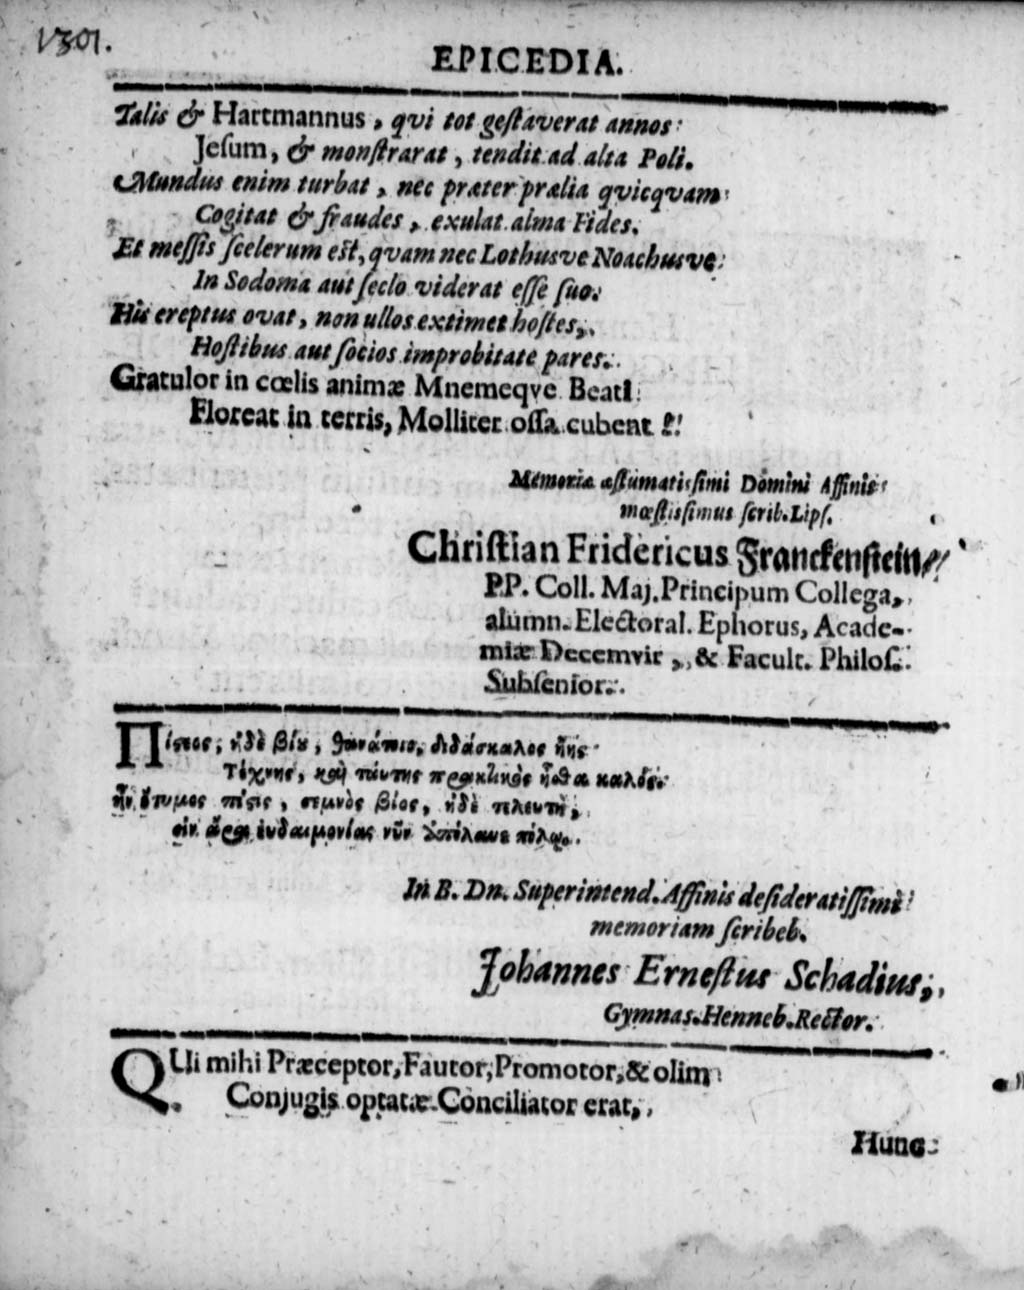 1301.
EPICEDIA.
Talis & Hartmannus, qvi tot geſtaverat annos
Jeſum, & monſtrarat, tendit ad alta Poli.
Mundus enim turbat, nec præter prælia qvicqvam
Cogitat & fraudes, exulat alma Fides.
Et meſſis ſcelerum eſt, qvam nec Lothusve Noachusve
In Sodoma aut ſeclo viderat eſſe ſuo.
His ereptus ovat, non ullos extimet hoſtes,
Hoſtibus aut ſocios improbitate pares.
Gratulor in cœlis animæ Mnemeqve Beati
Floreat in terris, Molliter oſſa cubent!
Memoriæ æſtumatiſſimi Domini Affinis
mœſtiſſimus ſcrib. Lipſ.
Chriſtian Fridericus Franckenſtein/
P.P. Coll. Maj. Principum Collega,
alumn. Electoral. Ephorus, Acade-
miæ Decemvir, & Facult. Philoſ.
Subſenior.
Πίστεος, ἠδὲ βίου, θανάτοιο, διδάσκαλος ἧης
Τέχνης, καὶ ταύτης πρακτικὸς ἦσθα καλός.
ἦν ἔτυμος πίστις, σεμνὸς βίος, ἠδὲ τελευτὴ,
εὐδαιμονίας νῦν ἀπέλαυε
In B. Dn. Superintend. Affinis deſideratiſſimi
memoriam ſcribeb.
Johannes Erneſtus Schadius,
Gymnas. Henneb. Rector.
QUi mihi Præceptor, Fautor, Promotor, & olim
Conjugis optatæ Conciliator erat,
Hunc